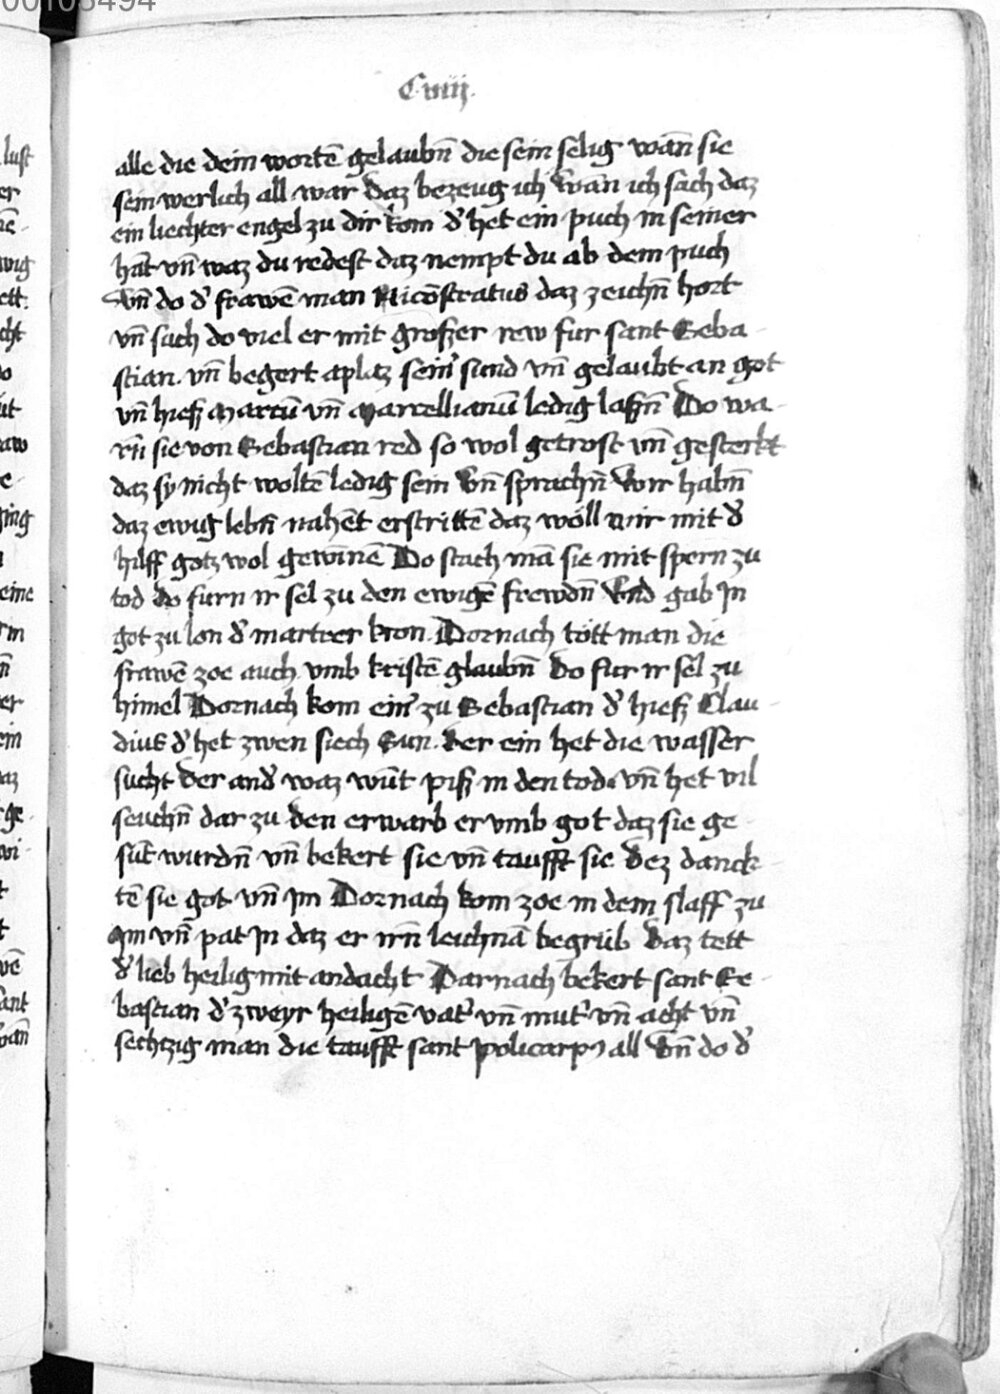 C viiij.
alle die dein wortē gelaubn̄ die sein selig wan̄ sie
sein werlich all war daz bezeug ich wan ich sach daz
ein liechter engel zu dir kom d' het ein puch in seiner
hāt vn̄ waz du redest daz nempt du ab dem puch
Vn̄ do d' frawē man Nicōstratus daz zeichn̄ hort
vn̄ sach do viel er mit grosser rew fur sant Seba
stian. vn̄ begert aplaz sein' sund vn̄ gelaubt an got
vn̄ hieß Marcū vn̄ Marcellianū ledig lassn̄ Do wa
rn̄ sie von Sebastian red so wol getrost vn̄ gesterkt
daz sy nicht woltē ledig sein Vn̄ sprachn̄ Wir habn̄
daz ewig lebn̄ nahēt erstrittē daz wöll wir mit d'
hilff gotz wol gewinnē Do stach mā sie mit spern zu
tod do furn ir sel zu den ewigē frewdn̄ Vnd gab In
got zu lon d' martrer kron. Dornach tött man die
frawē zoe auch vmb kristē glaubn̄ Do fur ir sel zu
himel Dornach kom ein' zu Sebastian d' hieß Clau
dius d' het zwen siech Sun. Der ein het die wasser
sucht der and' waz wūt piß in den tod. vn̄ het vil
seuchn̄ dar zu den erwarb er vmb got daz sie ge
sūt wurdn̄ vn̄ bekert sie vn̄ taufft sie Dez danck
tē sie got vn̄ Im Dornach kom zoe in dem slaff zu
Im vn̄ pat In daz er irn̄ leichnā begrüb Daz tett
d' lieb heilig mit andacht Darnach bekert sant Se
bastian d' zweyr heiligē vat' vn̄ mut' vn̄ acht vn̄
sechtzig man die taufft sant policarp' all Vn̄ do d'
lust
er
wig
ett.
cht
o
ging
eine
er
ein
ge
t
vē
ant
00103494